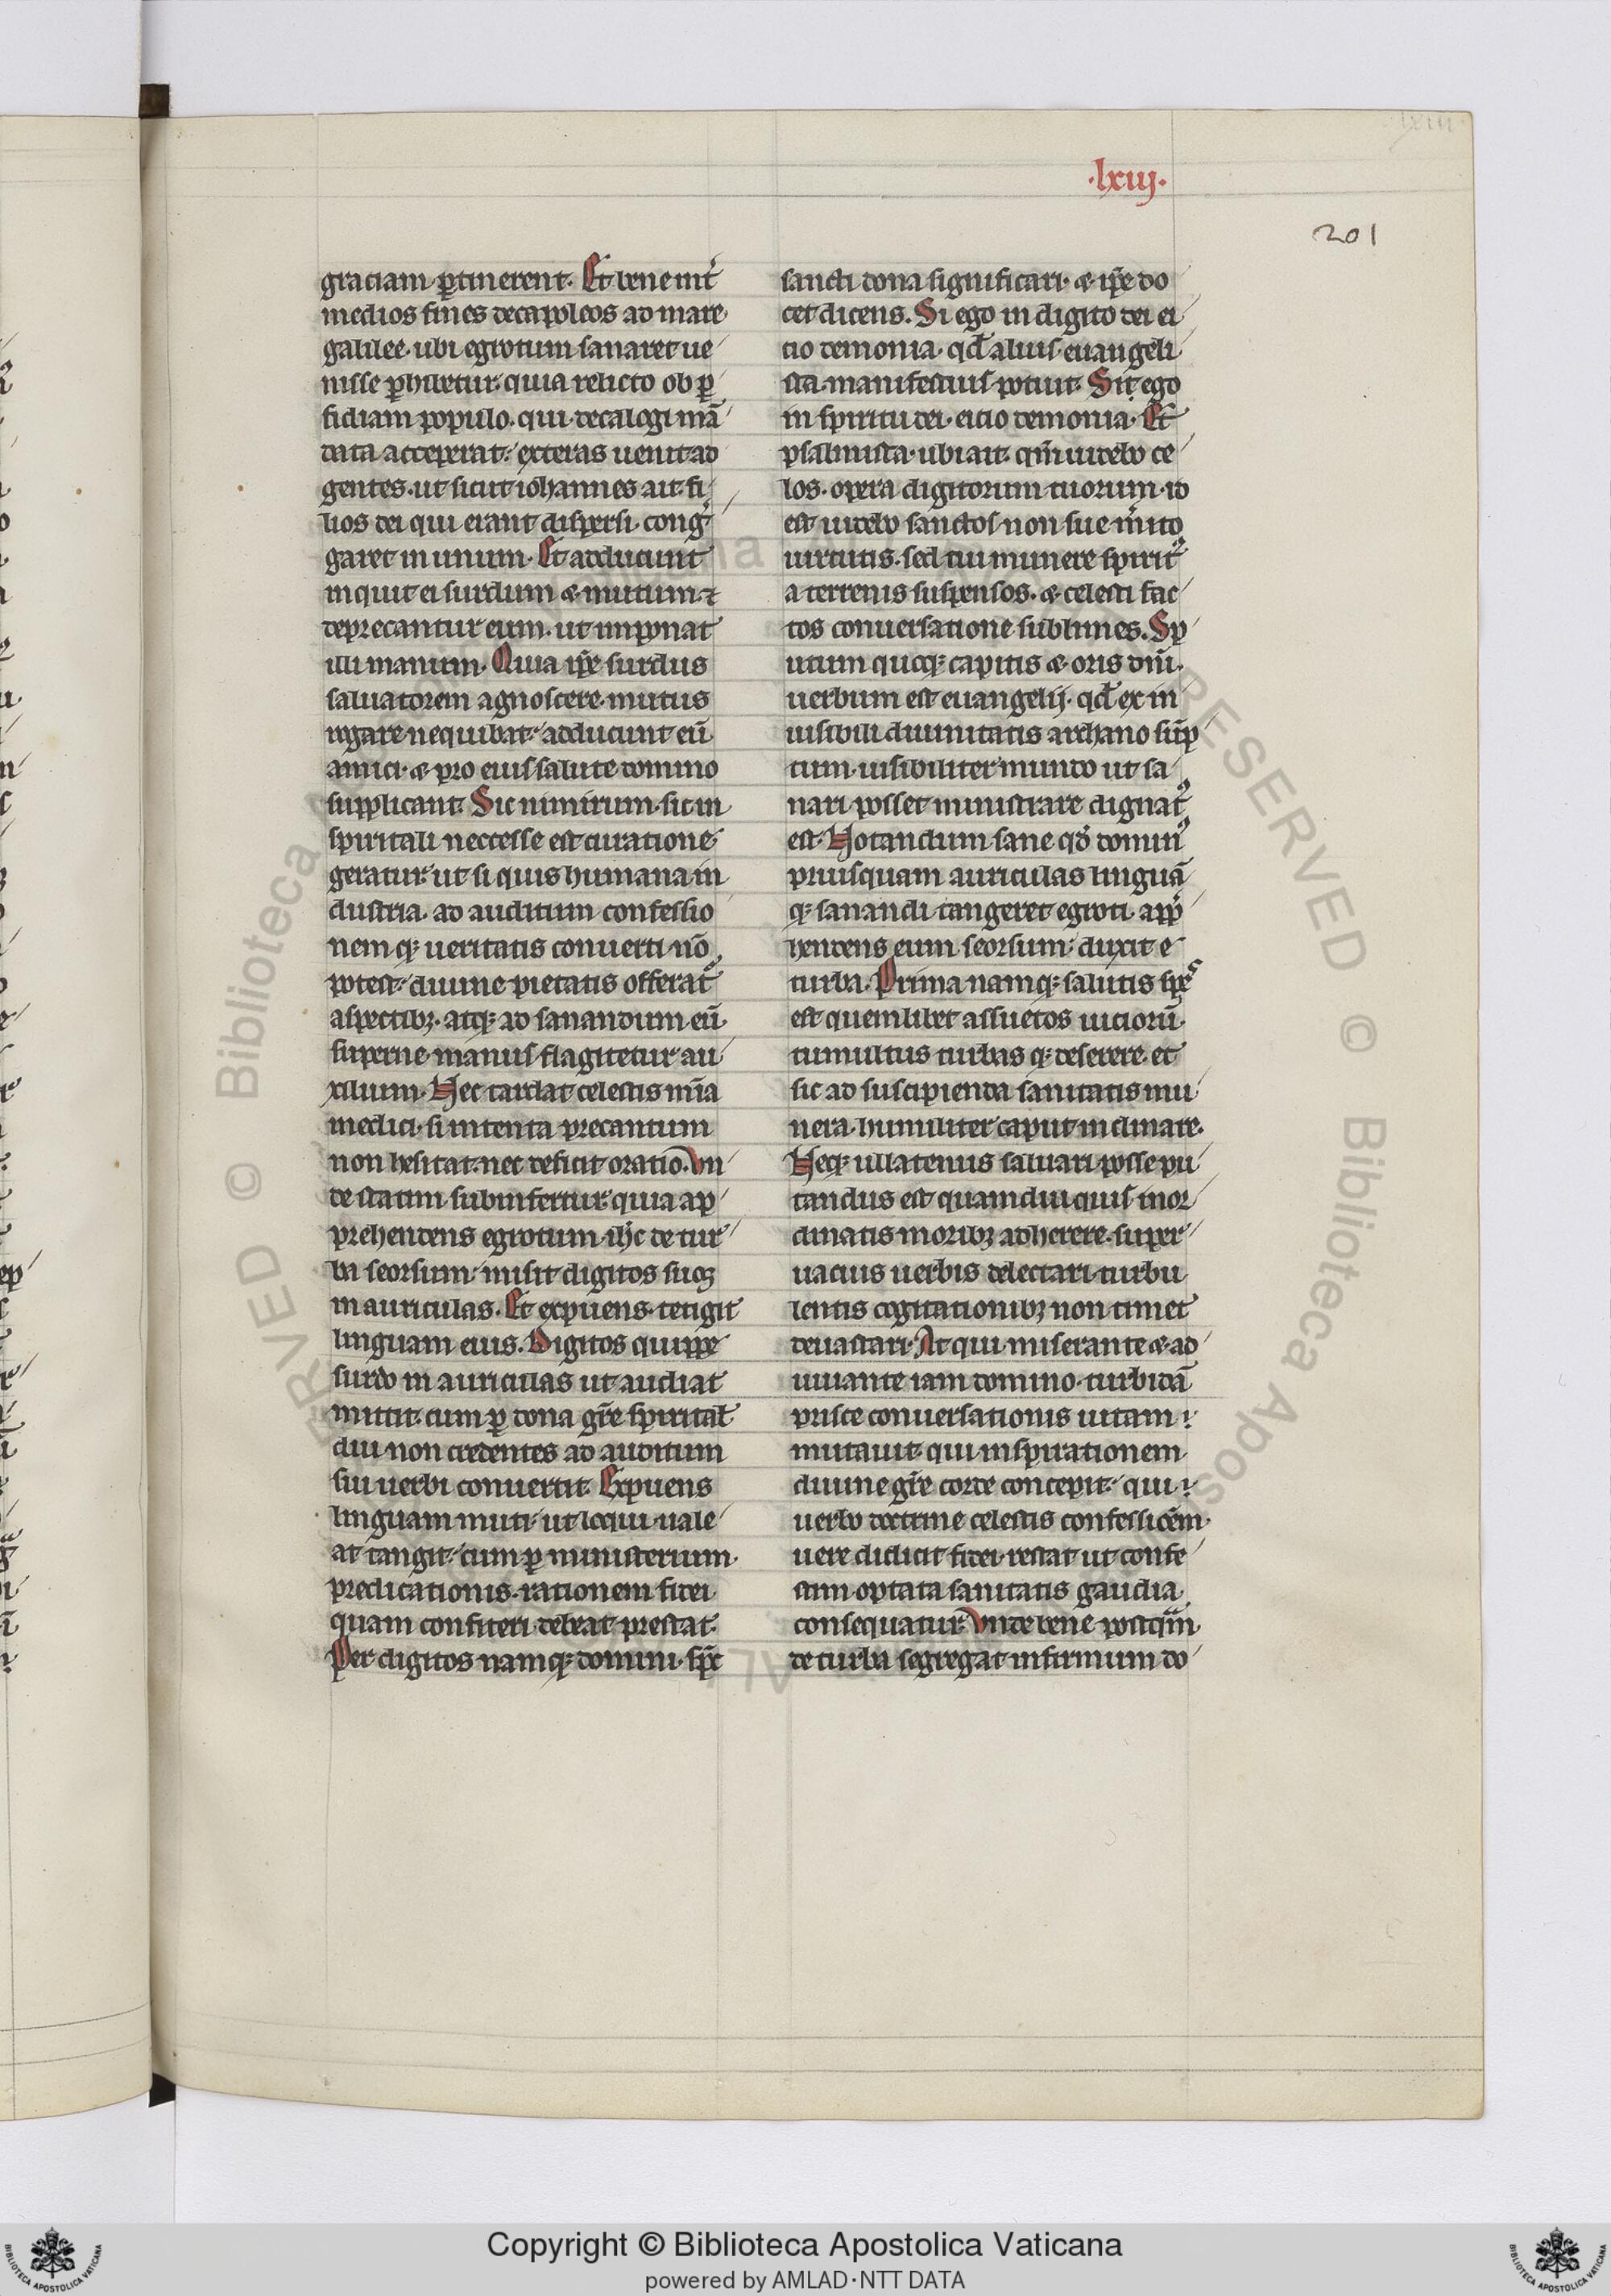 ·lxiij·
201
graciam ꝑtinerent. Et bene int͛
medios fines decapoleos ad mare
galilee. ubi egrotum sanaret ue
nisse ꝑhibetur. quia relicto ob ꝑ
fidiam populo. qui decalogi mā
data acceperat: exteras uenit ad
gentes. ut sicut iohannes ait. fi
lios dei qui erant dispersi. cong͛
garet in unum. Et adducunt
inquit ei surdum & mutum. ⁊
deprecantur eum. ut imponat
illi manum. Quia ip̄e surdus
saluatorem agnoscere. mutus
rogare nequibat: adducunt eū
amici. & pro eius salute domino
supplicant. Sic nimirum. sic in
spiritali neccesse est curatione
geratur. ut si quis humana in
dustria. ad auditum confessio
nem qꝫ ueritatis conuerti nō
potest: diuine pietatis offerat᷒
aspectibꝫ. atqꝫ ad sanandum eū
superne manus flagitetur au
xilium. Nec tardat celestis mīa
medici. si intenta precantum
non hesitat. nec deficit oratio. Vn
de statim subinfertur. quia ap
prehendens egrotum ih̄c de tur
ba seorsum: misit digitos suos
in auriculas. Et expuens. tetigit
linguam eius. Digitos quippe
surdo in auriculas ut audiat
mittit. cum ꝑ dona gr̄e spirital̄
diu non credentes ad auditum
sui uerbi conuertit. Expuens
linguam muti ut loqui uale
at tangit. cum ꝑ ministerium
predicationis. rationem fidei
quam confiteri debeat prestat.
Per digitos namqꝫ domini. sp̄c
sancti dona significari. & ip̄e do
cet dicens. Si ego in digito dei ei
cio demonia. qd̄ alius euangeli
sta manifestius potuit. Si ego
in spiritu dei. eicio demonia. Et
psalmista. ubi ait. qm̄ uidebo ce
los. opera digitorum tuorum. id
est uidebo sanctos non sue m͛ito
uirtutis. sed tui munere spirit᷒
a terrenis suspensos. & celesti fac
tos conuersatione sublimes. Sp
utum quoqꝫ capitis & oris dn̄i.
uerbum est euangelij. qd̄ ex in
uisibili diuinitatis archano sūp
tum. uisibiliter mundo ut sa
nari posset ministrare dignat᷒
est. Notandum sane qd̄ domin᷒
priusquam auriculas linguā
qꝫ sanandi tangeret egroti. app̄
hendens eum seorsum: duxit e
turba. Prima namqꝫ salutis spes
est quemlibet assuetos uiciorū
tumultus turbas qꝫ deserere. et
sic ad suscipienda sanitatis mu
nera. humiliter caput inclinare.
Neqꝫ ullatenus saluari posse pu
tandus est quamdiu quis inor
dinatis moribꝫ adherere. super
uacuis uerbis delectari. turbu
lentis cogitationibꝫ non timet
deuastari. At qui miserante & ad
iuuante iam domino. turbidā
prisce conuersationis uitam
mutauit. qui inspirationem
diuine gr̄e corde concepit: qui
uerbo doctrine celestis confessiōem
uere didicit fidei. restat ut confe
stim optata sanitatis gaudia
consequatur. Vnde bene postqm̄
de turba segregat infirmum do